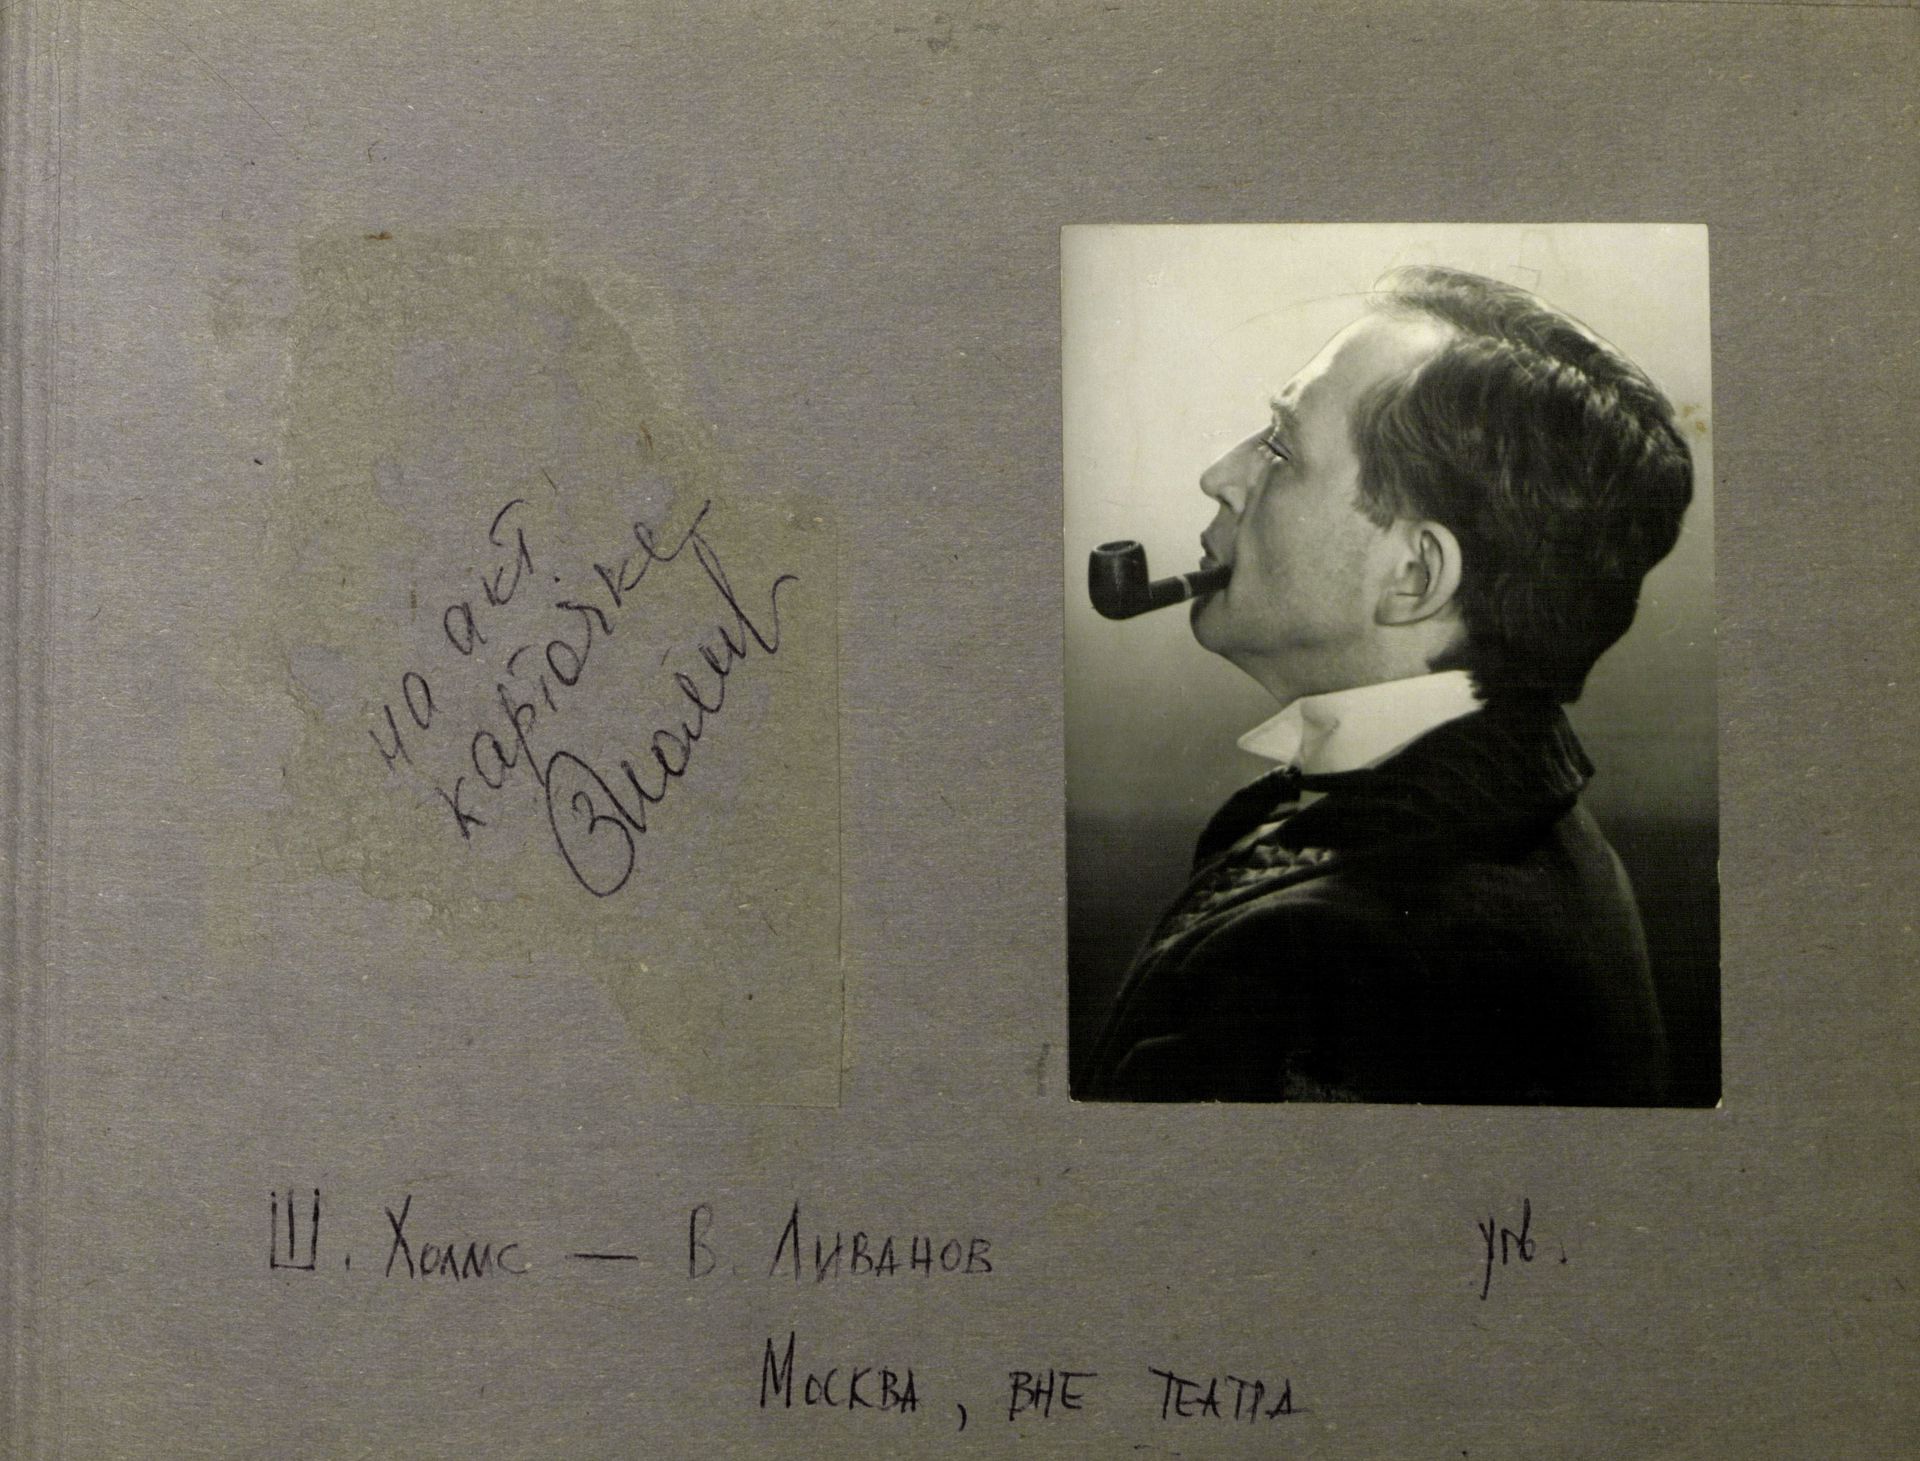 на акт.
карточке
Ш. Холмс — В. Ливанов
утв.
Москва, вне театра